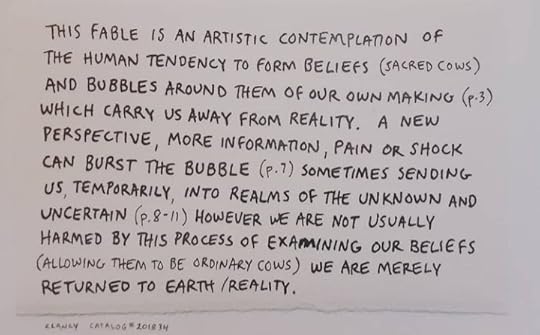 THIS FABLE IS AN ARTISTIC CONTEMPLATION OF
THE HUMAN TENDENCY TO FORM BELIEFS (SACRED COWS)
AND BUBBLES AROUND THEM OF OUR OWN MAKING (p.3)
WHICH CARRY US AWAY FROM REALITY. A NEW
PERSPECTIVE, MORE INFORMATION, PAIN OR SHOCK
CAN BURST THE BUBBLE (p.7) SOMETIMES SENDING
US, TEMPORARILY, INTO REALMS OF THE UNKNOWN AND
UNCERTAIN (p.8-11) HOWEVER WE ARE NOT USUALLY
HARMED BY THIS PROCESS OF EXAMINING OUR BELIEFS
(ALLOWING THEM TO BE ORDINARY COWS) WE ARE MERELY
RETURNED TO EARTH/REALITY.
CATALOG # 201834